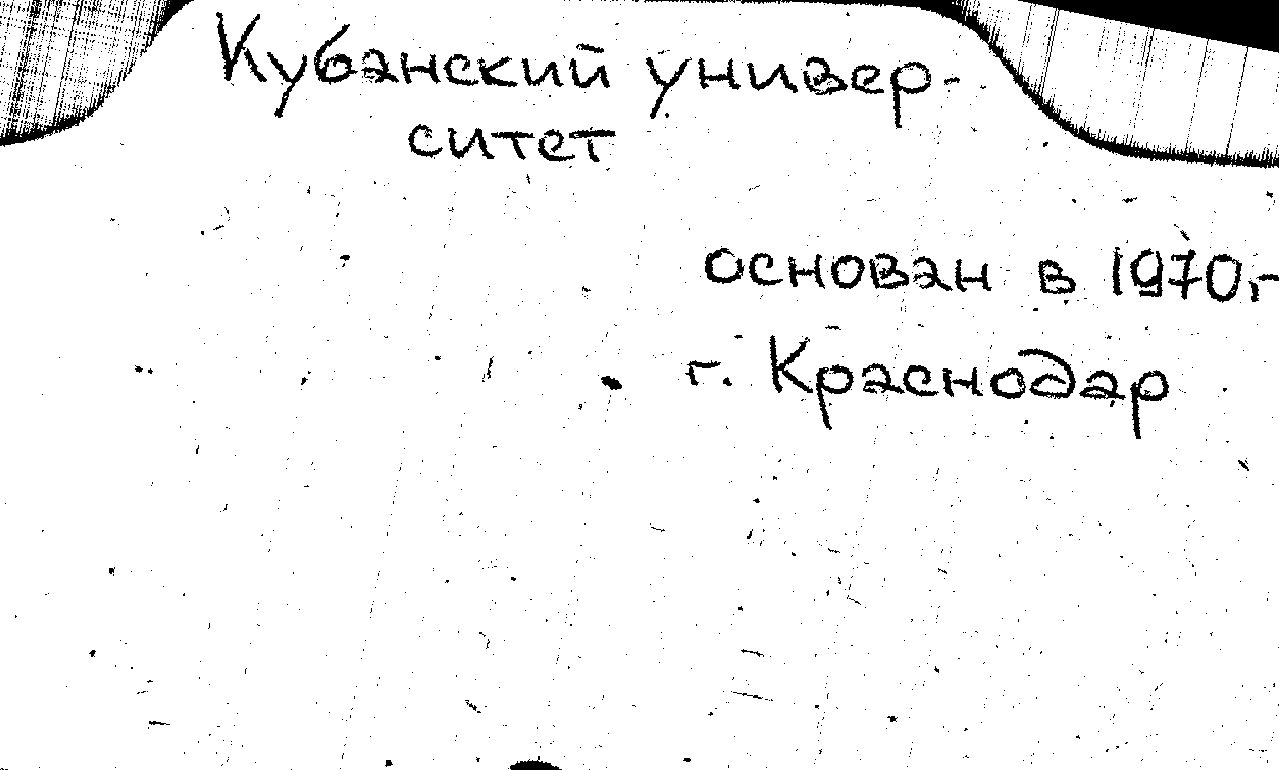 Кубанский универ-
ситет
основан в 1970,-
г. Краснодар